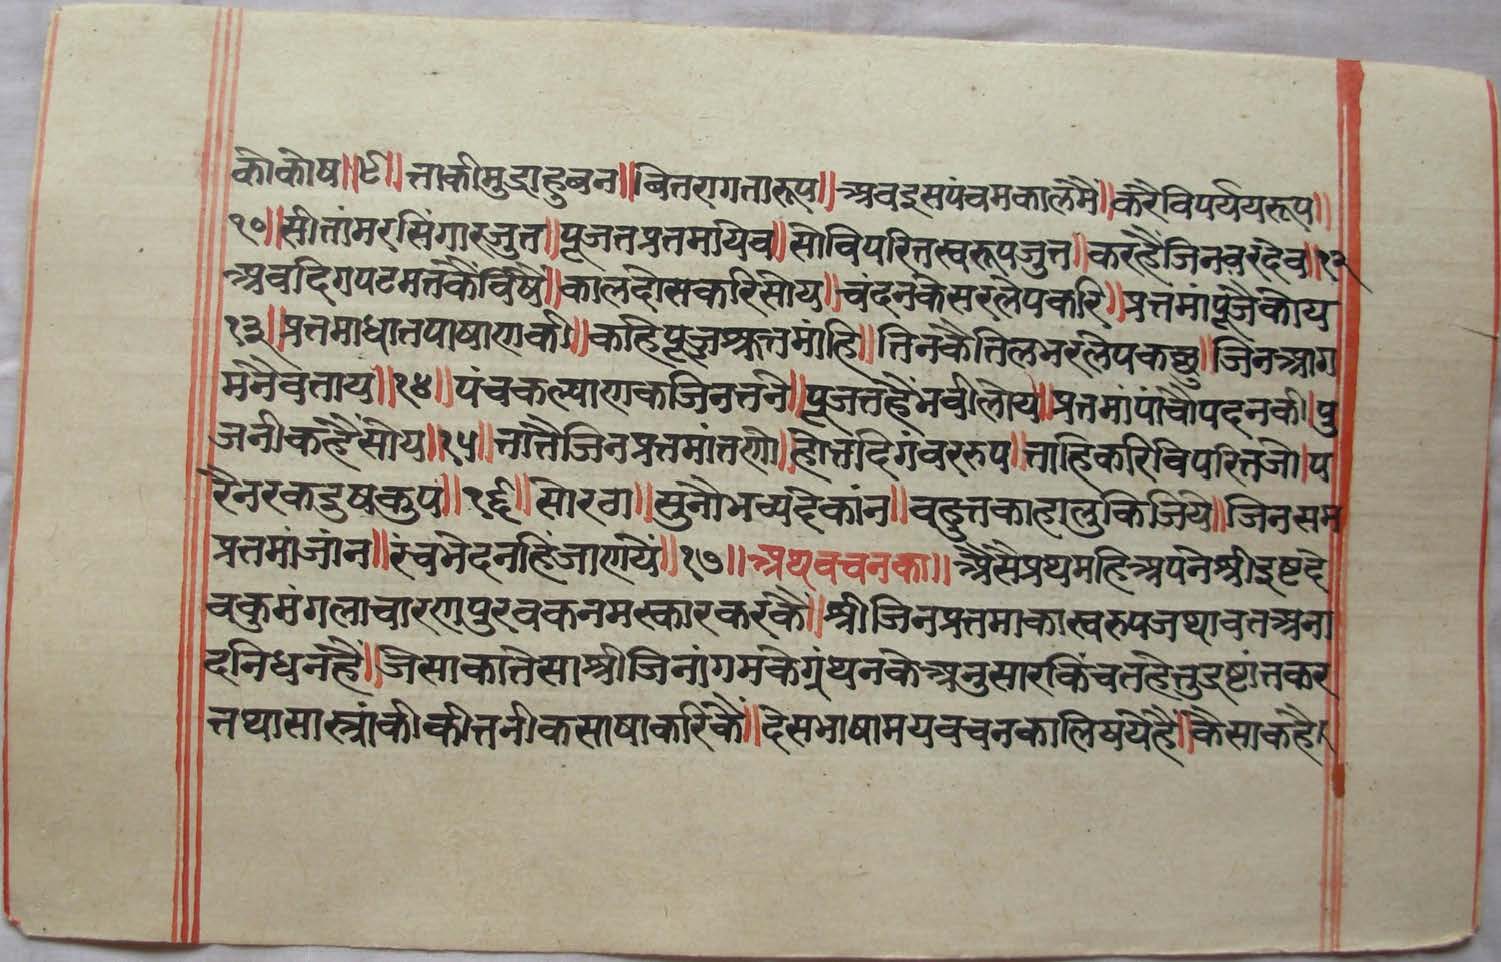 कोकोष॥९॥ताकीमुद्राहुबन॥बितरागतारूप॥अवइसपंचमकालमैं॥करैविपर्ययरूप॥
१०॥सीतांमरसिंगारजुत॥पूजतप्रतमायेव॥सोविपरितस्वरूपजुत॥करहैंजिनवरदेव॥१२
अवदिगपटमतकैविषैं॥कालदोसकरिसोय॥चंदनकेसरलेपकरि॥प्रतमांपूजैकोय
१३॥प्रतमाधातपाषाणकी॥कहिपूजश्रुतमांहि॥तिनकैतिलभरलेपकछु॥जिनआग
मनैवताय॥१४॥पंचकल्याणकजिनतनै॥पूजतहैंभवीलोय॥प्रतमांपांचौपदनकी॥पु
जनीकहैंसोय॥१५॥तातैजिनप्रतमांतणो॥होतदिगंवररुप॥ताहिकरिविपरितजो॥प
रैनरकदुषकुप॥१६॥सोरठा॥सुनौभव्यदेकांन॥वहुतकाहालुकिजिये॥जिनसम
प्रतमांजांन॥रंचभेदनहिंजाणयें॥१७॥अथवचनका॥अैसेप्रथमहिअपनेश्रीइष्टदे
वकुमंगलाचारणपुरवकनमस्कारकरकै॥श्रीजिनप्रतमाकास्वरुपजथावतअना
दनिधनहैं॥जैसाकातैसाश्रीजिनांगमकेग्रंथनकेअनुसारकिंचतहेतुद्रष्टांतकर
तथासास्त्रांकीकीतनीकसाषाकरिकैं॥देसभाषामयवचनकालिषयेहैं॥कैसाकहै।